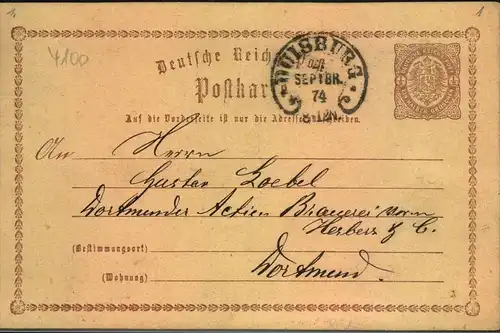 1.
1
4100
Deutsche Reichs
Postkar
DUISBURG
SEPTBR.
74
8-12N.
Auf die Vorderseite ist nur die Adresse zu schreiben.
An Herrn
Gustav Loebel
Dortmunder Actien Brauerei vorm
Herberz & C.
(Bestimmungsort)
Dortmund.
(Wohnung)